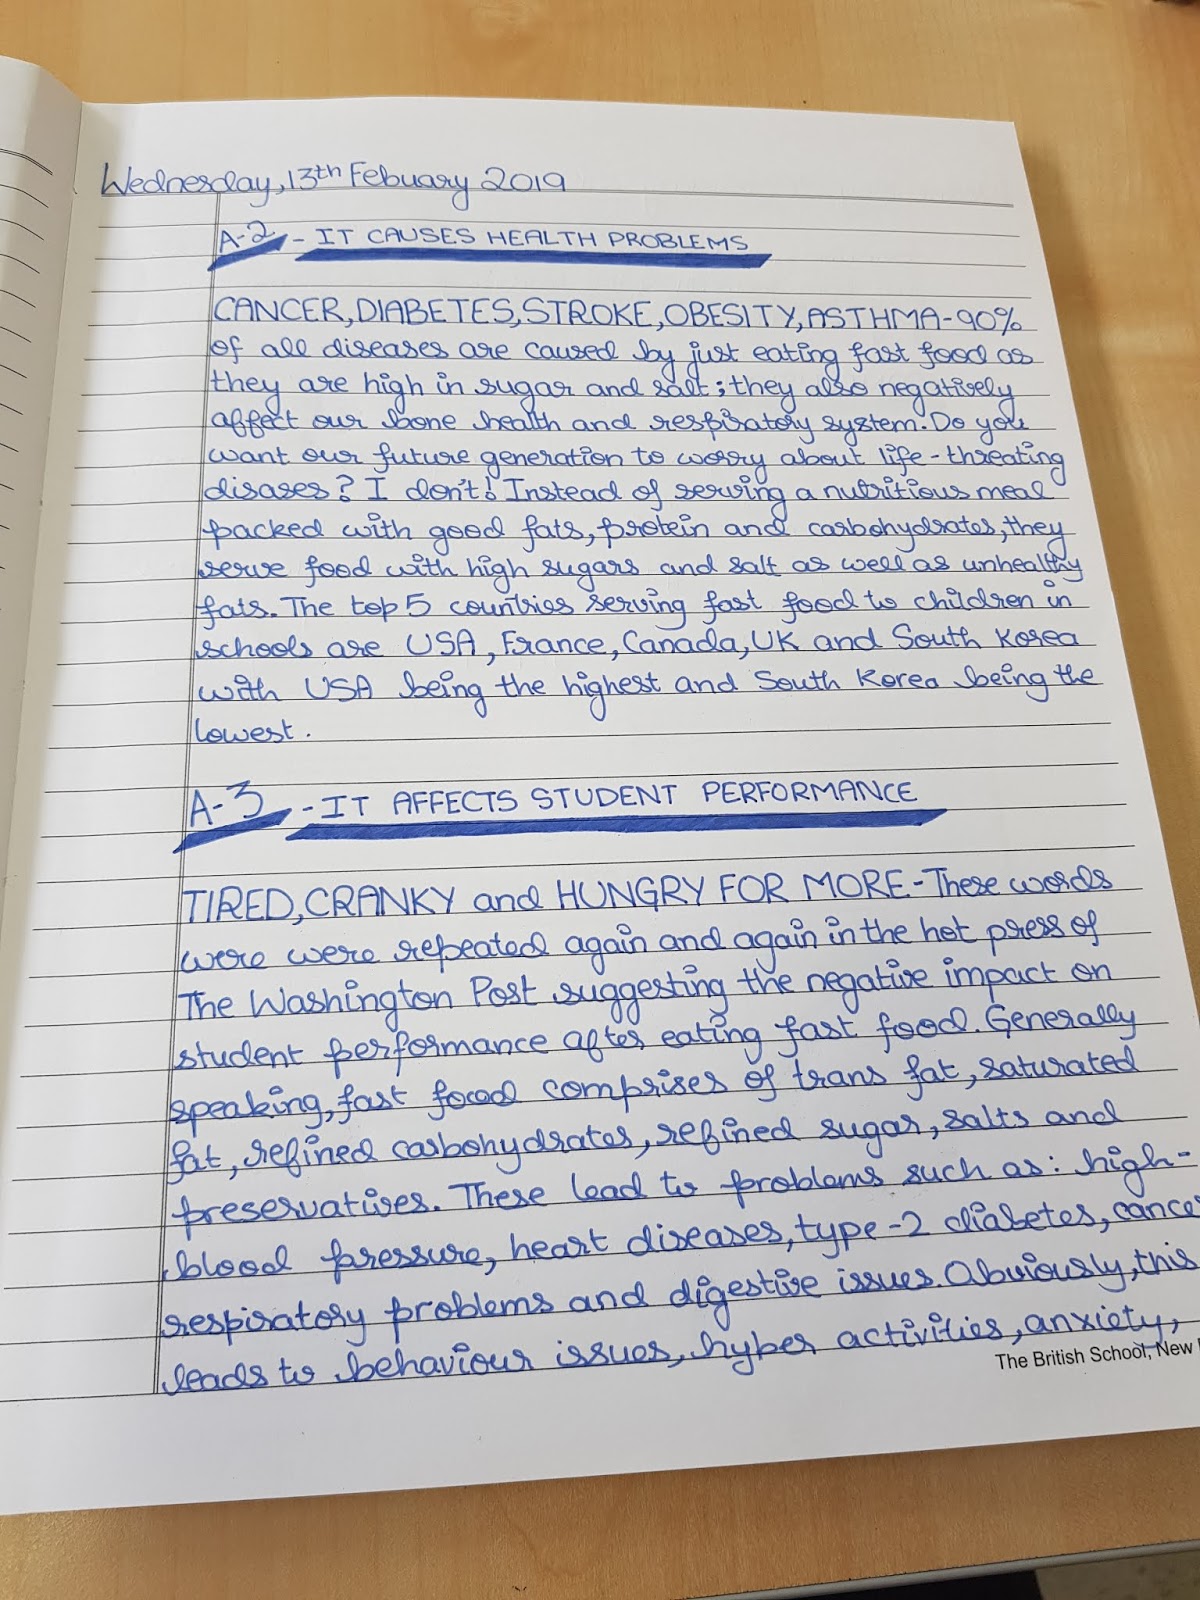 Wednesday, 13th Febuary 2019
A-2 - IT CAUSES HEALTH PROBLEMS
CANCER, DIABETES, STROKE, OBESITY, ASTHMA - 90%
of all diseases are caused by just eating fast food as
they are high in sugar and salt; they also negatively
affect our bone health and respiratory system. Do you
want our future generation to worry about life-threating
disases? I don't! Instead of serving a nutritious meal
packed with good fats, protein and carbohydrates, they
serve food with high sugars and salt as well as unhealthy
fats. The top 5 countries serving fast food to children in
schools are USA, France, Canada, UK and South Korea
with USA being the highest and South Korea being the
lowest.
A-3 - IT AFFECTS STUDENT PERFORMANCE
TIRED, CRANKY and HUNGRY FOR MORE - These words
were were repeated again and again in the hot press of
The Washington Post suggesting the negative impact on
student performance after eating fast food. Generally
speaking, fast food comprises of trans fat, saturated
fat, refined carbohydrates, refined sugar, salts and
preservatives. These lead to problems such as: high-
blood pressure, heart diseases, type-2 diabetes, cance
respiratory problems and digestive issues. Obviously, this
leads to behaviour issues, hyber activities, anxiety,
The British School, New